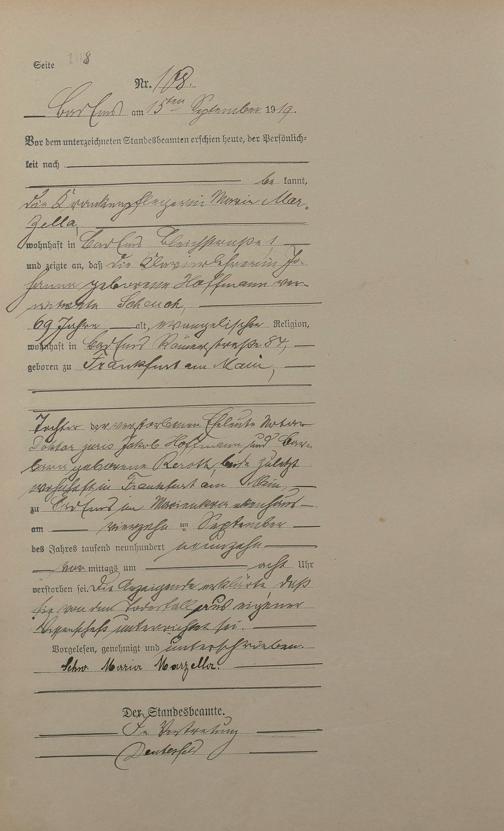 Seite 108
Nr. 108.
Bad Ems am 15ten September 1919.
Vor dem unterzeichneten Standesbeamten erschien heute, der Persönlich-
keit nach
be kannt,
die Krankenpflegerin Maria Mar-
zella
wohnhaft in Bad Ems Bleichstraße 1,
und zeigte an, daß die Klavierlehrerin Jo-
hanna geborene Hoffmann ver-
witwete Schauch,
69 Jahre alt, evangelischer Religion,
wohnhaft in Bad Ems Römerstraße 87,
geboren zu Frankfurt am Main,
Tochter der verstorbenen Eheleute Notar
Doktor juris Jakob Hoffmann und Bar-
bara geborene Reroth, beide zuletzt
wohnhaft in Frankfurt am Main,
zu Bad Ems im Marienkrankenhaus
am vierzehn ten September
des Jahres tausend neunhundert neunzehn
vor mittags um acht Uhr
verstorben sei. Die Anzeigende erklärte, daß
sie von dem Todesfall aus eigener
Wissenschaft unterrichtet sei.
Vorgelesen, genehmigt und unterschrieben.
Schw. Maria Marzella.
Der Standesbeamte.
In Vertretung